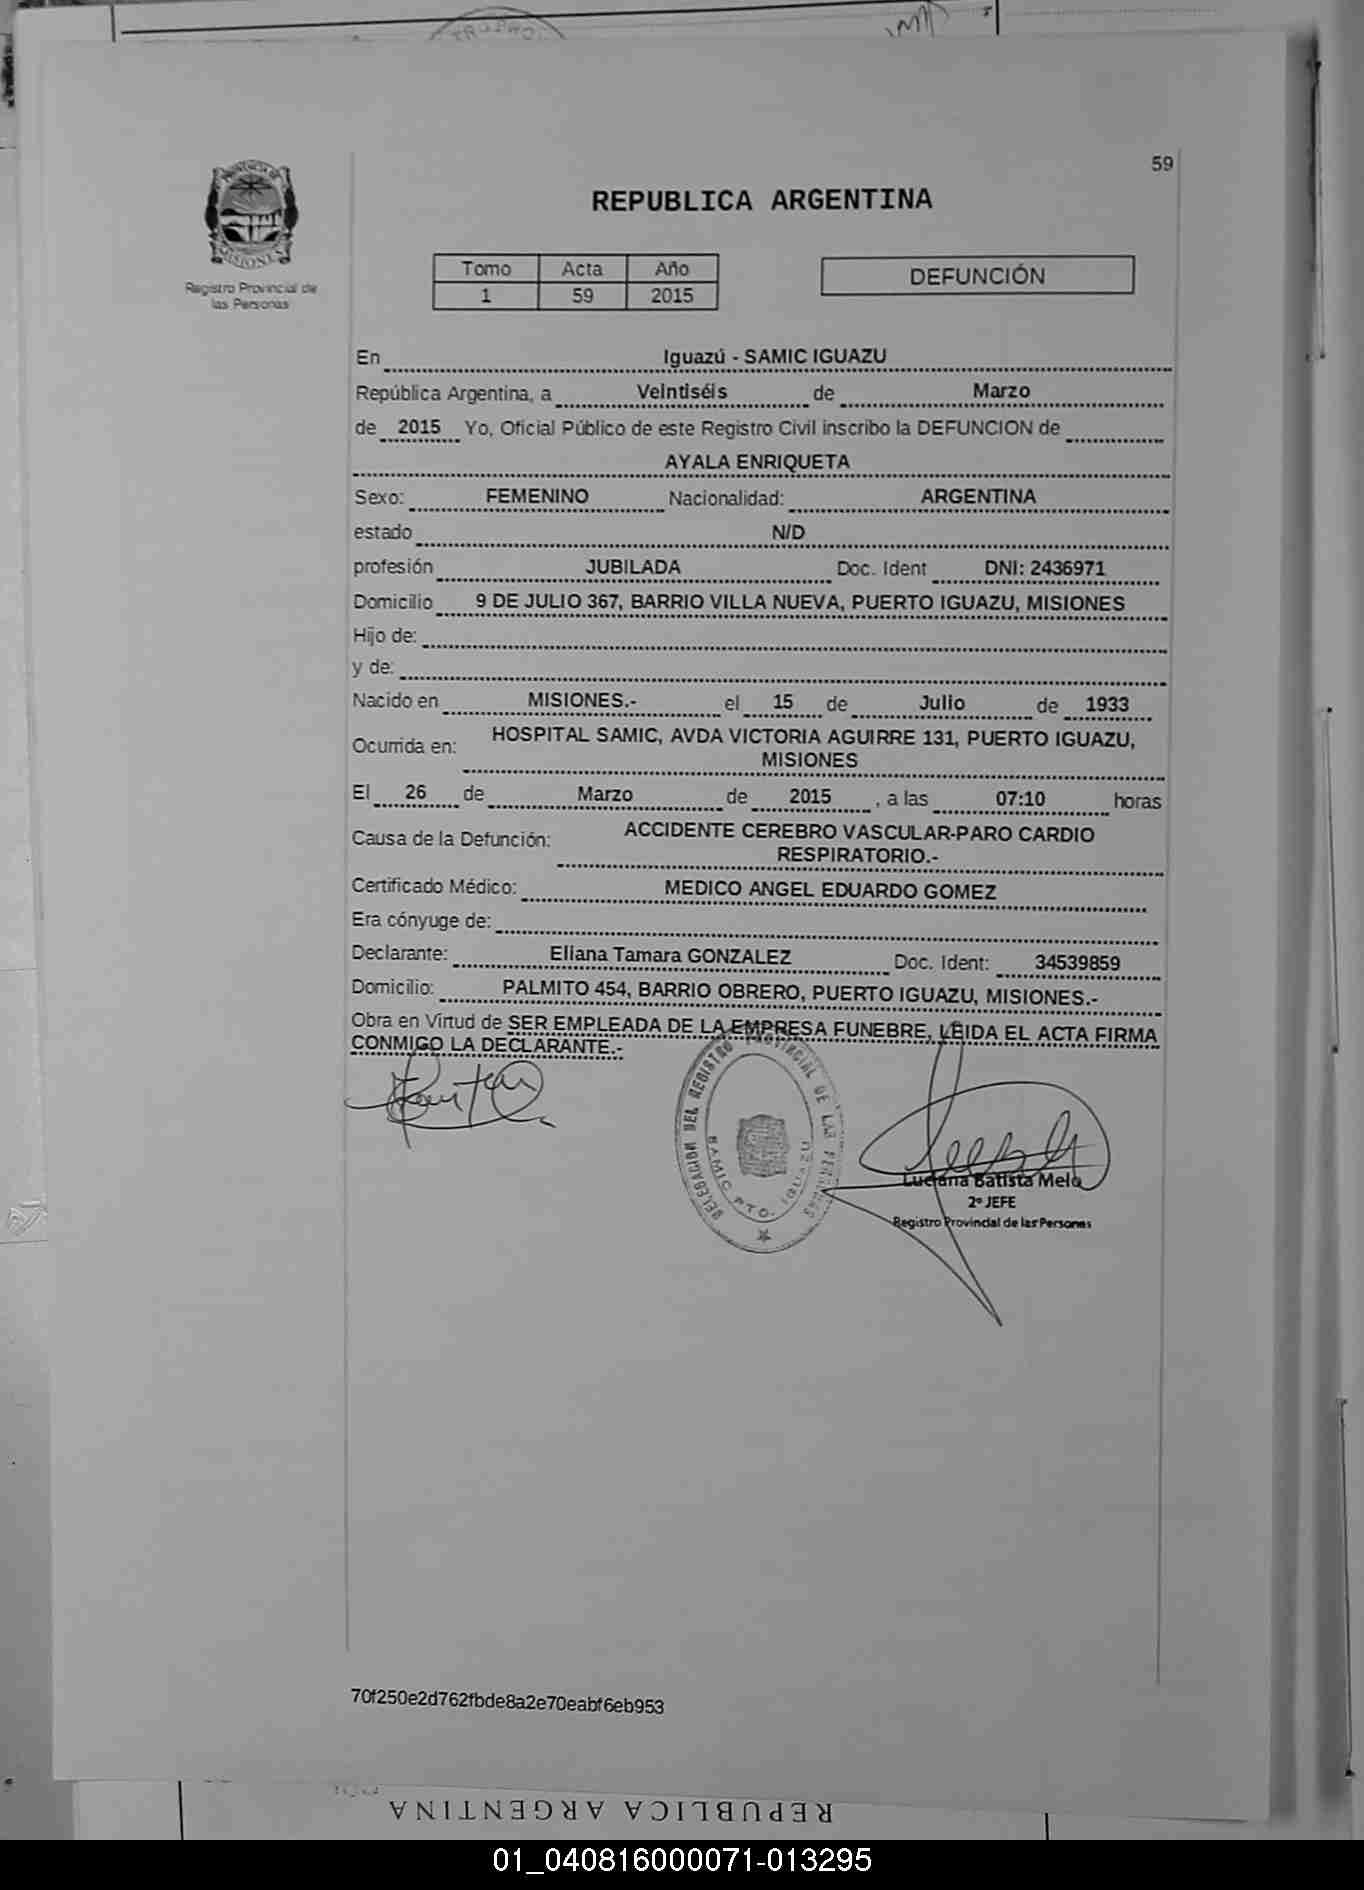 59
PROVINCIA DE
MISIONES
Registro Provincial de
las Personas
REPUBLICA ARGENTINA
Tomo Acta Año
1 59 2015
DEFUNCIÓN
En Iguazú - SAMIC IGUAZU
República Argentina, a Veintiséis de Marzo
de 2015 Yo, Oficial Público de este Registro Civil inscribo la DEFUNCION de
AYALA ENRIQUETA
Sexo: FEMENINO Nacionalidad: ARGENTINA
estado N/D
profesión JUBILADA Doc. Ident DNI: 2436971
Domicilio 9 DE JULIO 367, BARRIO VILLA NUEVA, PUERTO IGUAZU, MISIONES
Hijo de:
y de:
Nacido en MISIONES.- el 15 de Julio de 1933
Ocurrida en: HOSPITAL SAMIC, AVDA VICTORIA AGUIRRE 131, PUERTO IGUAZU,
MISIONES
El 26 de Marzo de 2015 , a las 07:10 horas
Causa de la Defunción: ACCIDENTE CEREBRO VASCULAR-PARO CARDIO
RESPIRATORIO.-
Certificado Médico: MEDICO ANGEL EDUARDO GOMEZ
Era cónyuge de:
Declarante: Eliana Tamara GONZALEZ Doc. Ident: 34539859
Domicilio: PALMITO 454, BARRIO OBRERO, PUERTO IGUAZU, MISIONES.-
Obra en Virtud de SER EMPLEADA DE LA EMPRESA FUNEBRE, LEIDA EL ACTA FIRMA
CONMIGO LA DECLARANTE.-
DELEGACION DEL REGISTRO PROVINCIAL DE LAS PERSONAS
SAMIC PTO. IGUAZU
Luciana Batista Melo
2º JEFE
Registro Provincial de las Personas
70f250e2d762fbde8a2e70eabf6eb953
REPUBLICA ARGENTINA
01_040816000071-013295